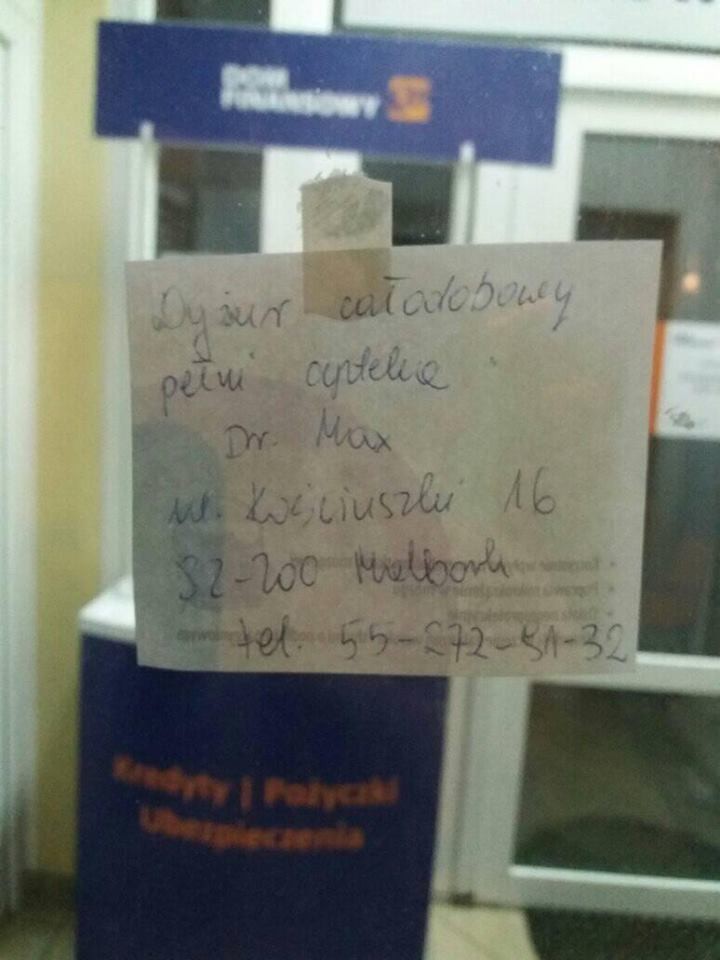 DOM
FINANSOWY
Dyżur całodobowy
pełni apteka
Dr. Max
ul. Kościuszki 16
82-200 Malbork
tel. 55-272-51-32
Kredyty | Pożyczki
Ubezpieczenia